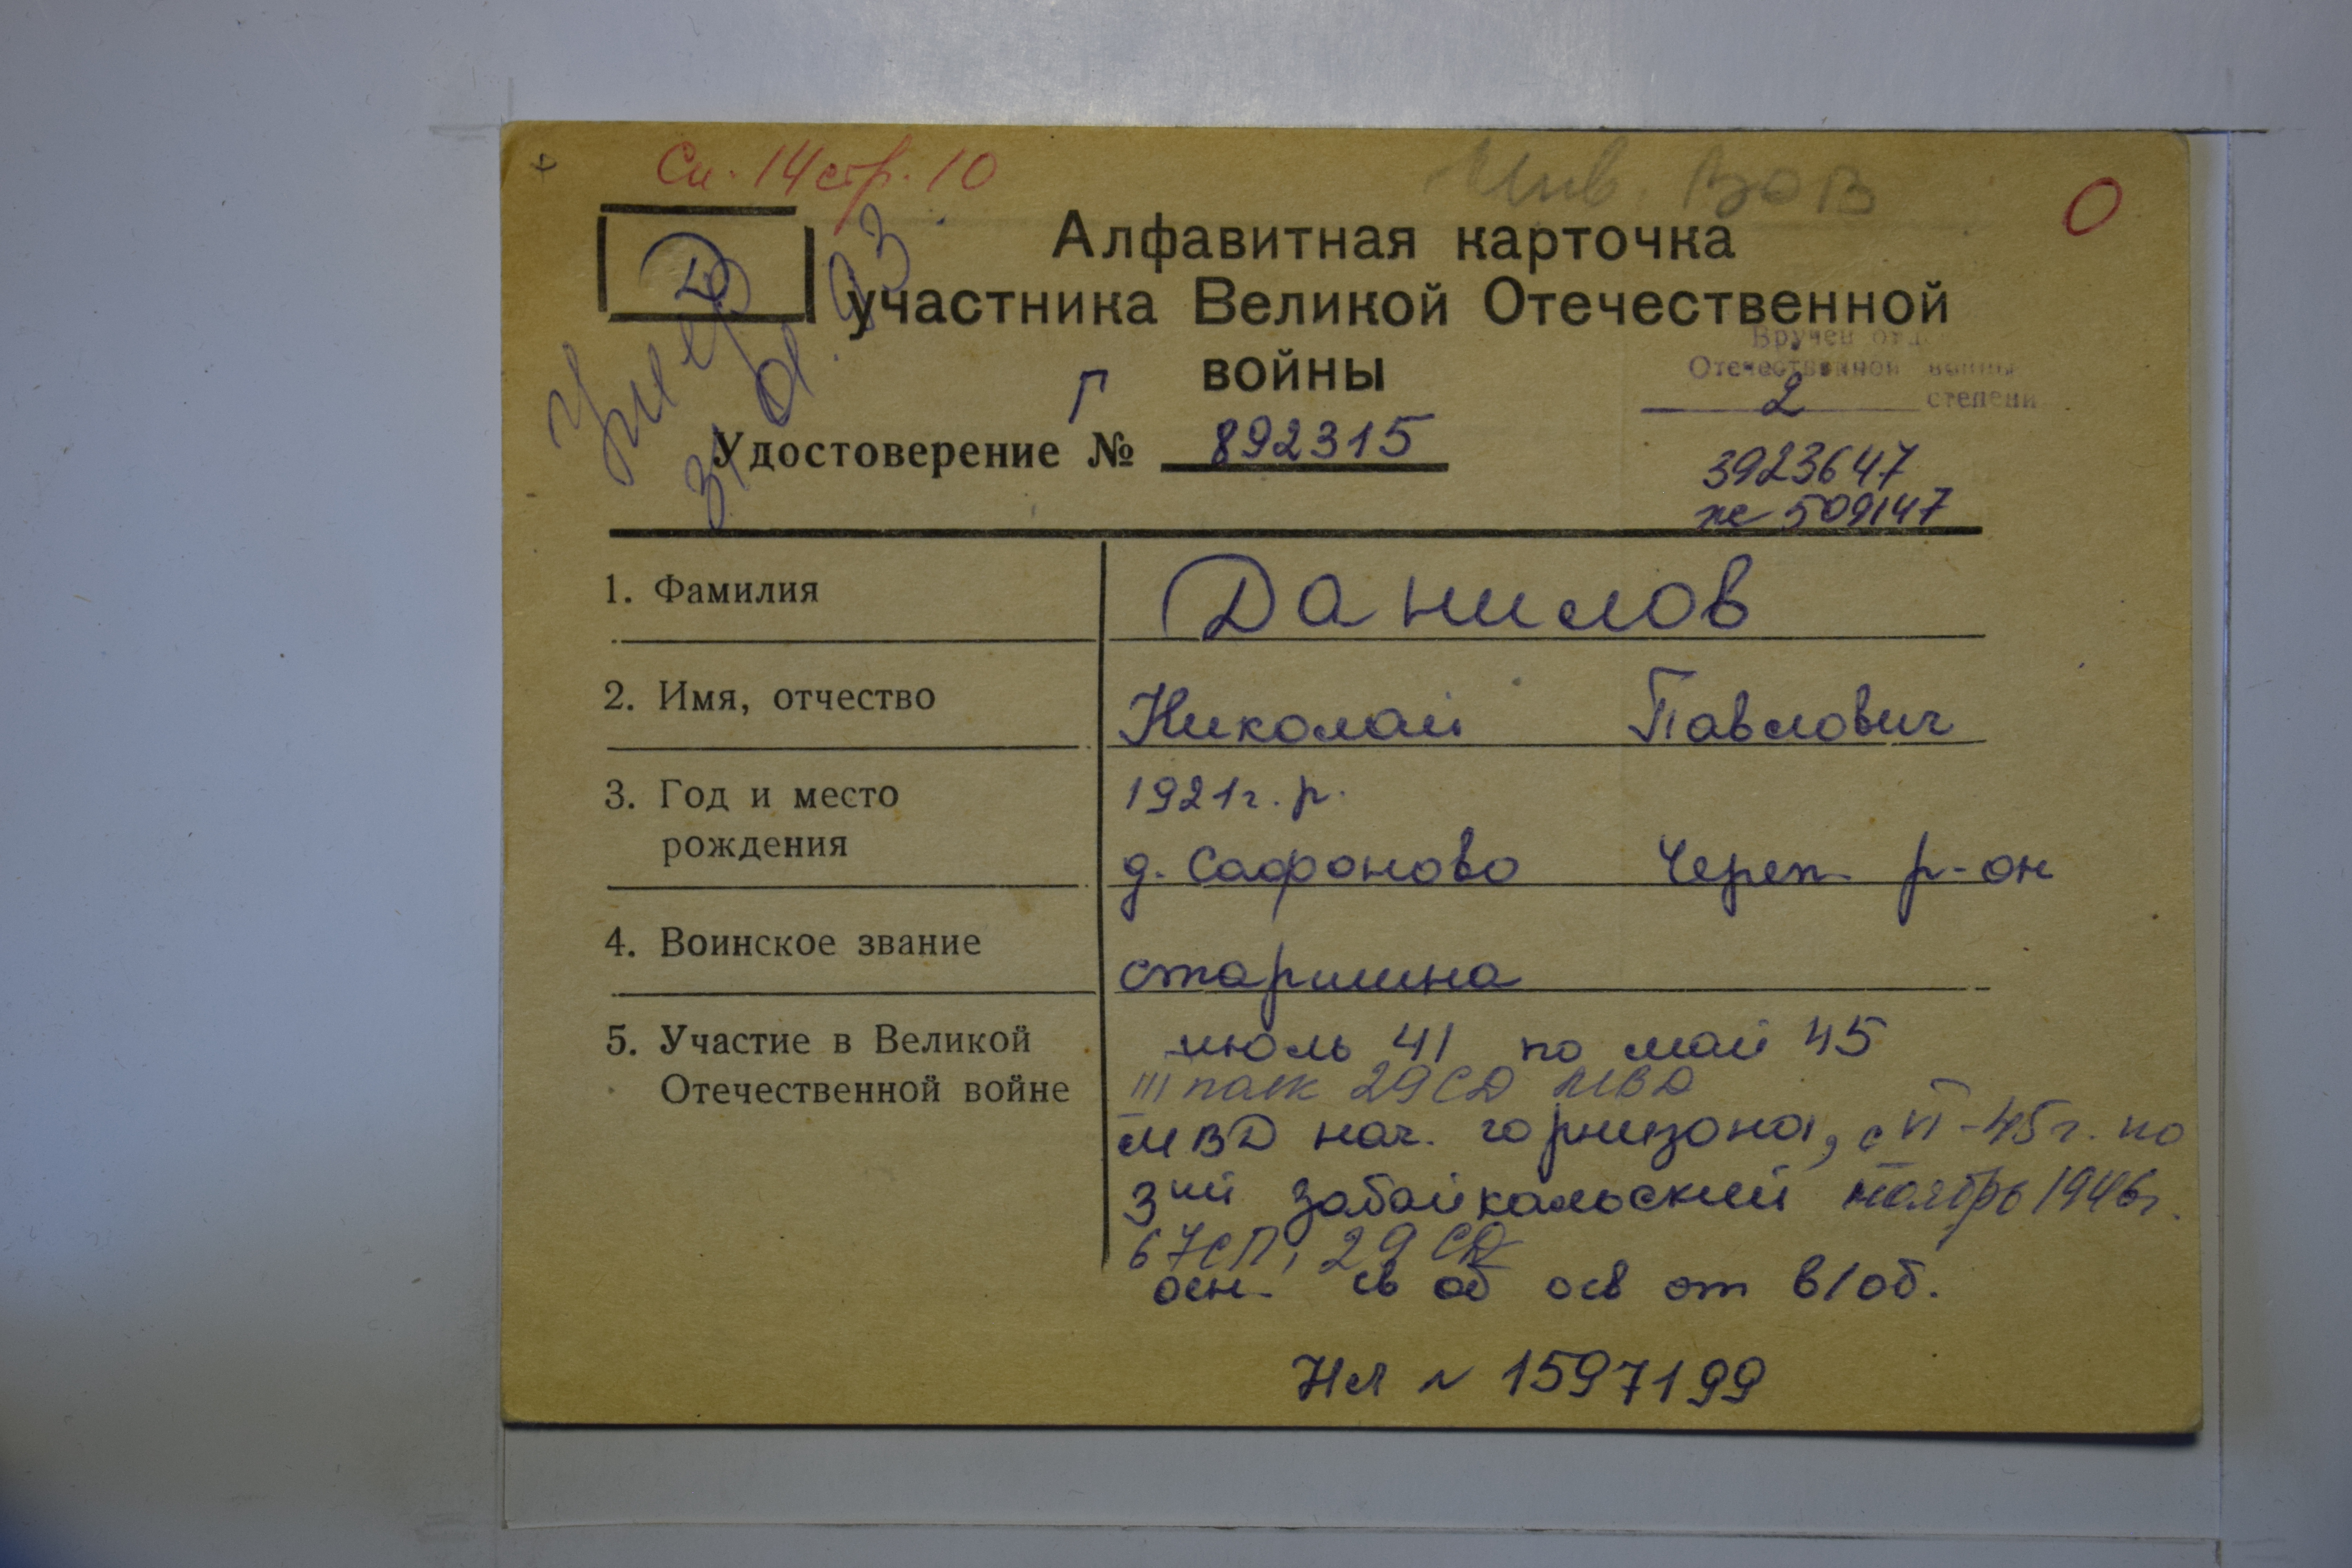 Сп. 14 стр. 10
Инв. ВОВ
О
Д
Умер
31 01.93
Алфавитная карточка
участника Великой Отечественной
войны
Вручен орд.
Отечественной войны
2 степени
Г
Удостоверение № 892315
3923647
же 509147
1. Фамилия Данилов
2. Имя, отчество Николай Павлович
3. Год и место 1921 г. р.
рождения д. Сафоново Череп. р-он
4. Воинское звание старшина
5. Участие в Великой июль 41 по май 45
Отечественной войне III полк 29 СД МВД
МВД нач. горнизона, с VI-45 г. по
3ий забайкальский ноябрь 1946г.
67 СП, 29 СД
осн. св об осв от в/об.
Нл № 1597199